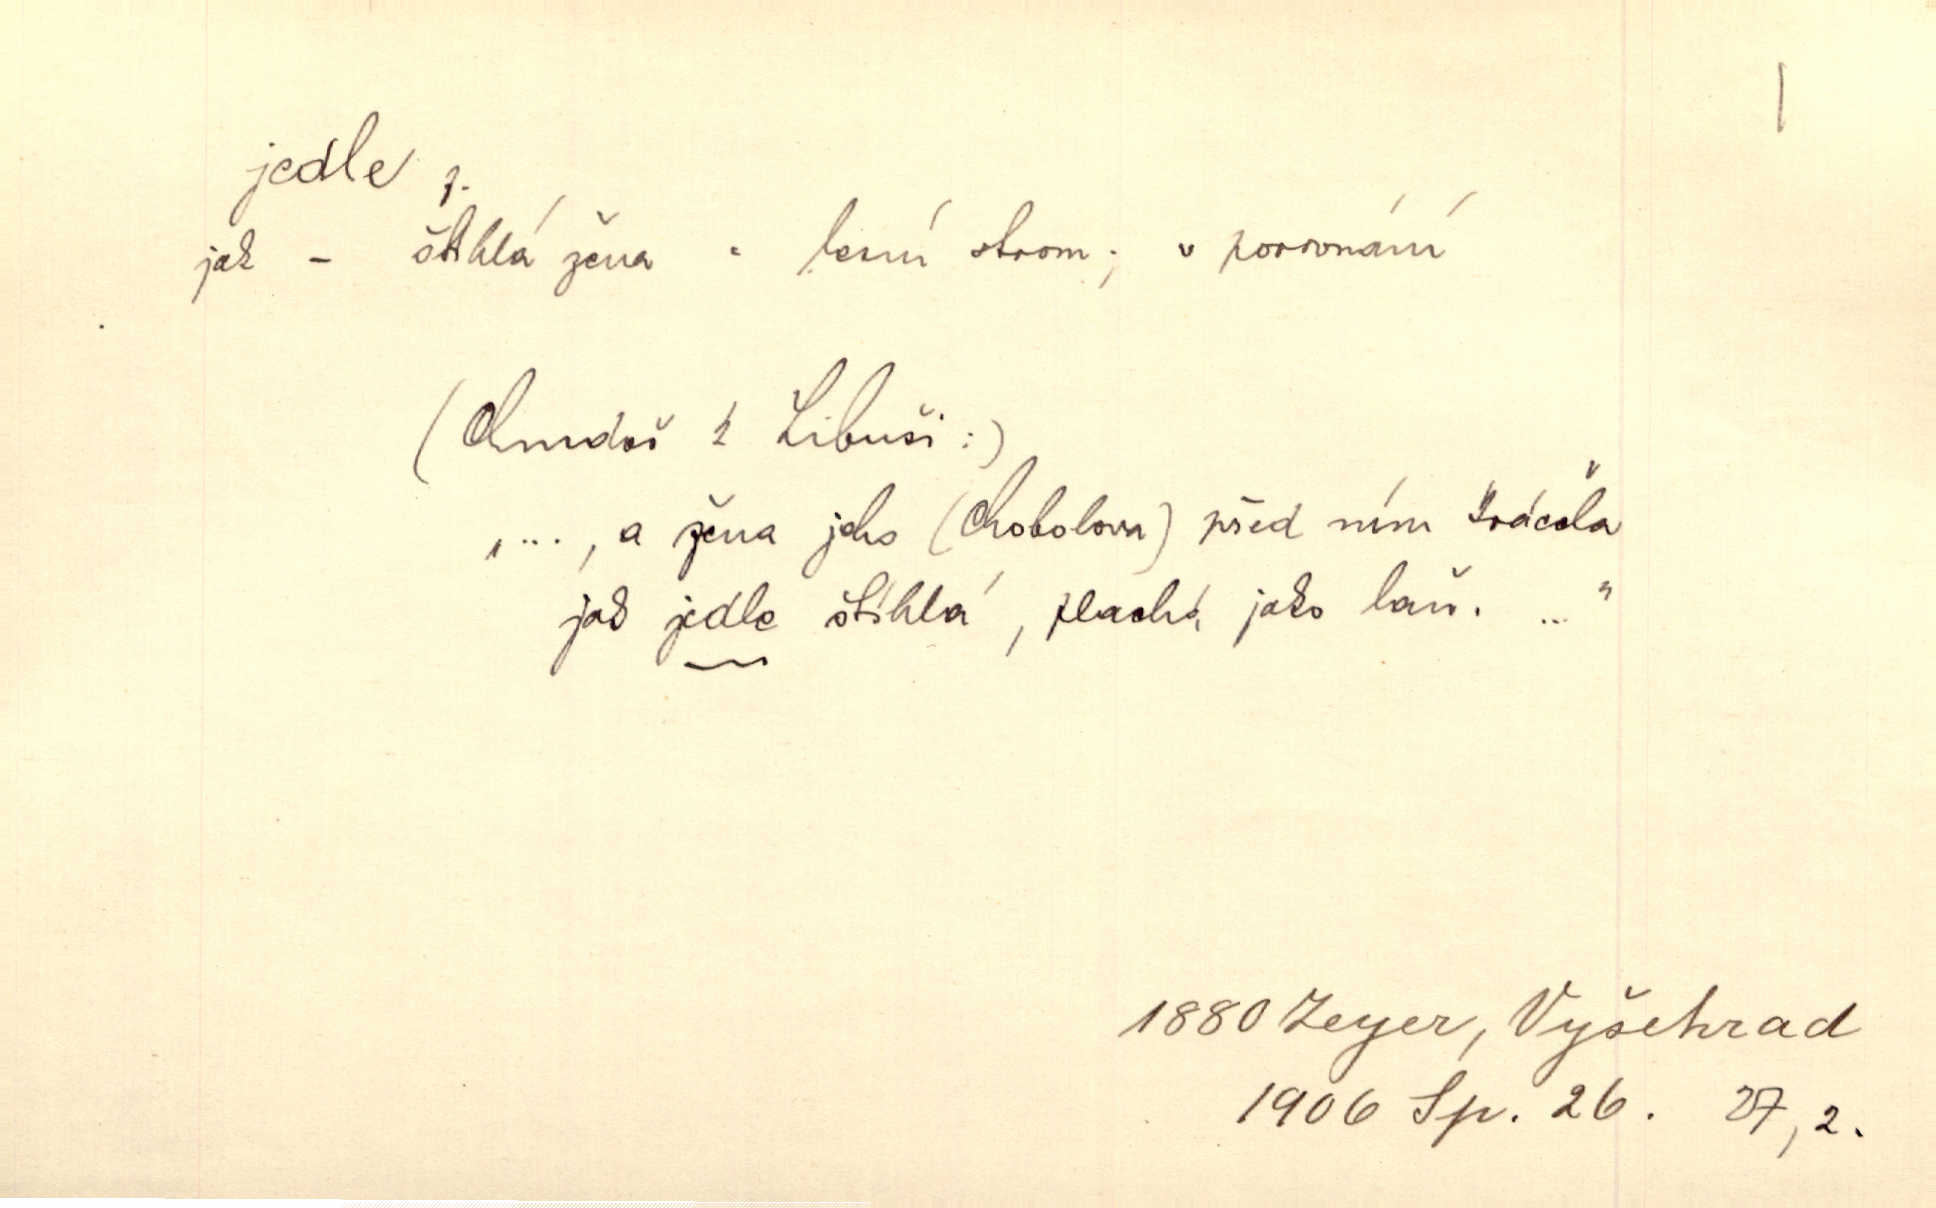 jedle f.
jak – štíhlá žena = lesní strom; v porovnání
(Chrudoš k Libuši:)
„..., a žena jeho (Chobolova) před ním kráčela
jak jedle štíhlá, plachá jako laň. ..."
1880 Zeyer, Vyšehrad
1906 Sp. 26. 27, 2.